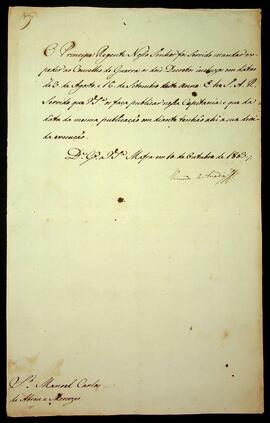 O Principe Regente Nosso Senhor foi Servido mandar ex-
pedir ao Conselho de Guerra os dois Decretos incluzos em datas
de 3 de Agosto e 16 de Setembro deste anno. E he S. A. R.
Servido que V. S.ª os faça publicar nessa Capitania e que da
data da mesma publicação em diante tenhão ahi a sua devi-
da execução.
D.s G.e a V. S.ª Mafra em 10 de Outubro de 1803.
S.r Manoel Carlos
de Abreu e Menezes